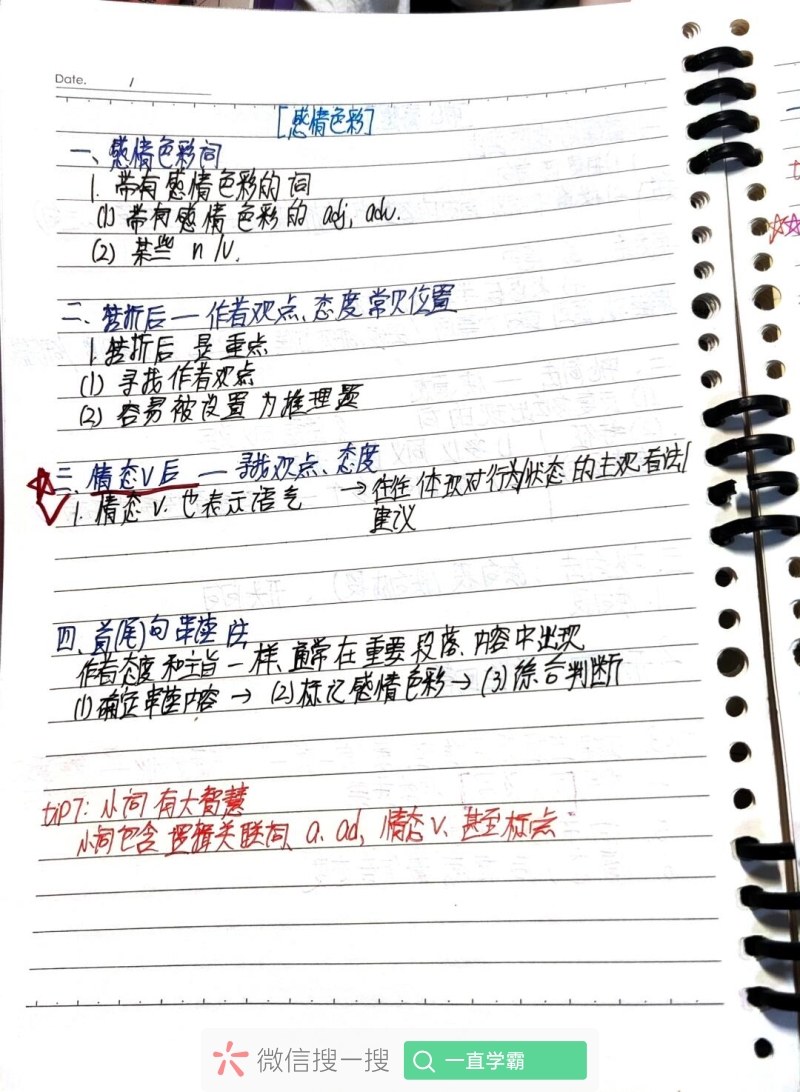 Date. /
[感情色彩]
一、感情色彩词
1. 带有感情色彩的词
(1) 带有感情色彩的 adj, adv.
(2) 某些 n /v.
二、转折后 — 作者观点、态度常见位置
1. 转折后 是重点
(1) 寻找作者观点
(2) 容易被设置为推理题
三、情态v后 — 寻找观点、态度
1. 情态 v. 也表示语气 → 往往体现对行为/状态的主观看法/
建议
四、首(尾)句串连法
作者态度和主旨一样,通常在重要段落、内容中出现
(1)确定串连内容 → (2)标记感情色彩 → (3)综合判断
tip7: 小词有大智慧
小词包含逻辑关联词、a. ad, 情态v、甚至标点
微信搜一搜 一直学霸